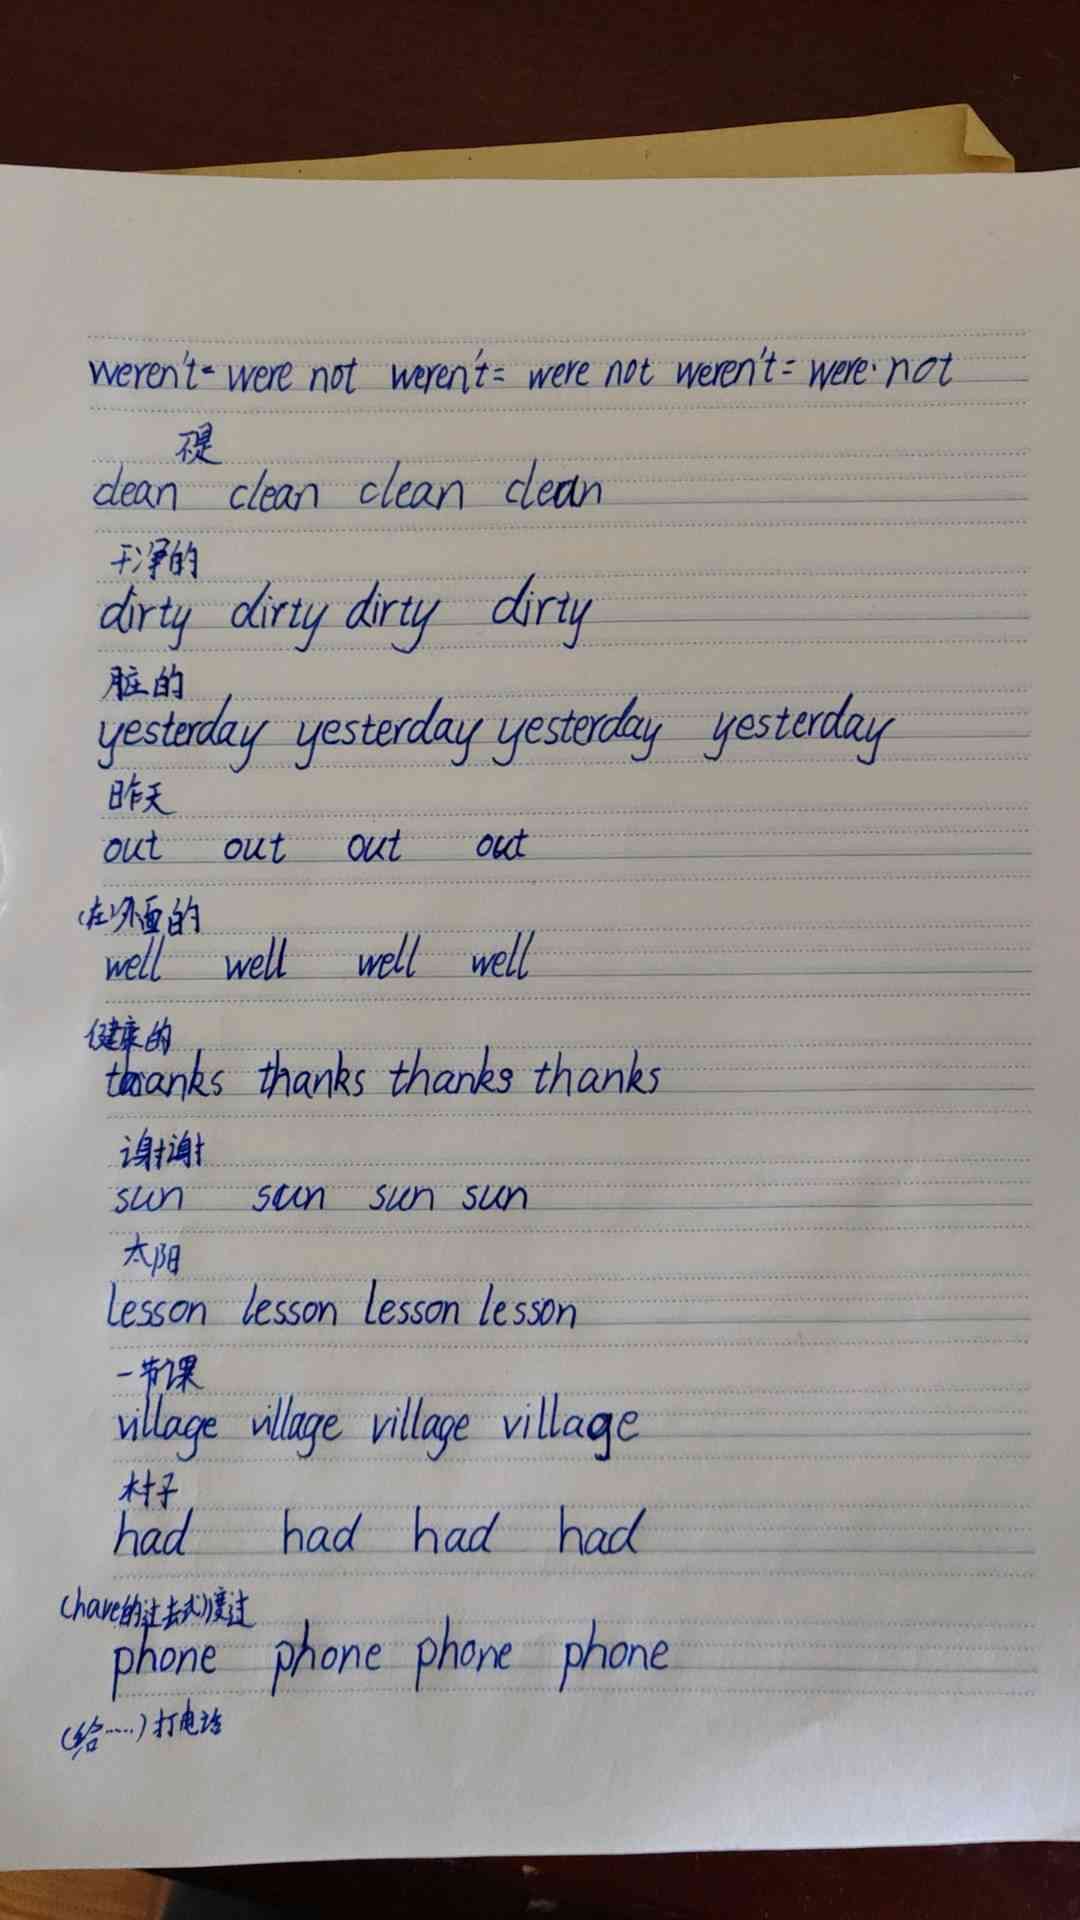 weren't= were not weren't= were not weren't= were not
不是
clean clean clean clean
干净的
dirty dirty dirty dirty
脏的
yesterday yesterday yesterday yesterday
昨天
out out out out
(在)外面的
well well well well
健康的
thanks thanks thanks thanks
谢谢
sun sun sun sun
太阳
lesson lesson lesson lesson
一节课
village village village village
村子
had had had had
(have的过去式)度过
phone phone phone phone
(给……)打电话